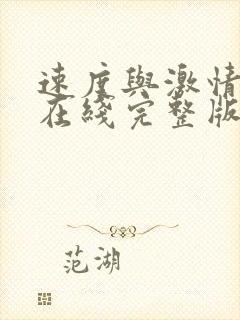 速度與激情
在綫完整版
范湖